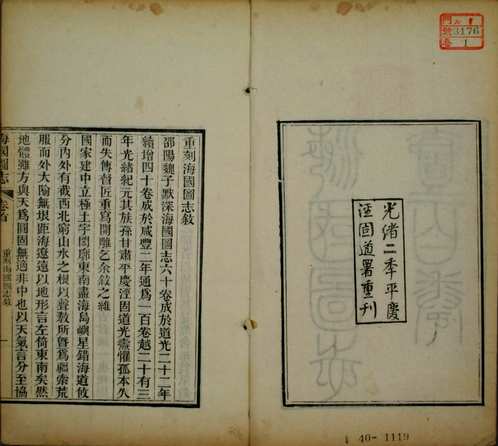 光緒二年平慶
涇固道署重刊
重刻海國圖志敘
邵陽魏子默深海國圖志六十卷成於道光二十二年
續增四十卷成於咸豐二年通為一百卷越二十有三
年光緒紀元其族孫甘肅平慶涇固道光燾懼孤本久
而失傳督匠重為開雕乞余敘之維
國家建中立極土宇閎廓東南盡海島嶼星錯海道攸
分內外有截西北窮山水之根以聲教所暨為疆索荒
服而外大隃無垠距海遼遠以地形言左倚東南矣然
地體雖方與天為圓固無適非中也以天氣言分至協
海國圖志
卷首
重刻海國圖志敘
一
3176
1
40-1119